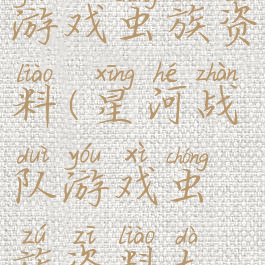 游戏虫族资
liào xīng hé zhàn
料(星河战
duì yóu xì chóng
队游戏虫
zú zī liào dà
族资料